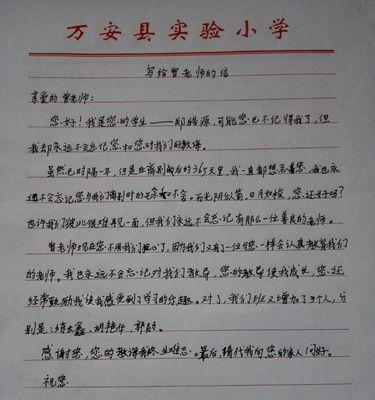 万安县实验小学
写给曾老师的信
亲爱的曾老师：
您好！我是您的学生——郑皓源，可能您已不记得我了，但
我却永远不会忘记您和您对我们的教诲。
虽然已时隔一年，但是在离别后的365天里，我一直都想念着您，我也永
远不会忘记您与我们离别时的不舍。光阴似箭，日月如梭，您还好吗？
也许我们彼此很难再见一面，但我们永远不会忘记有那么一位善良的老师。
曾老师现在您不用为我们担心了，因为我们又有了一位与您一样会认真教导我们
的老师。我也永远不会忘记对我们教导，您的教导使我成长，您还
经常鼓励我使我感受到了学习的乐趣。对了，我们班又增加了3个人，分
别是：鑫、胡艳华、郭尉。
感谢您，您的教诲我终生难忘。最后，请代我向您的家人问好。
祝您